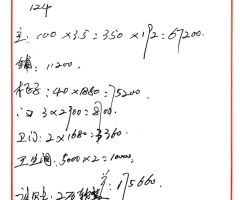 124
主: 100 × 3.5 = 350 × 192 = 67200.
辅: 11200.
柜子: 40 × 1880 = 75200
门 3 × 2900 = 8700.
卫门: 2 × 1680 = 3360
卫生间: 5000 × 2 = 10000.
175660.